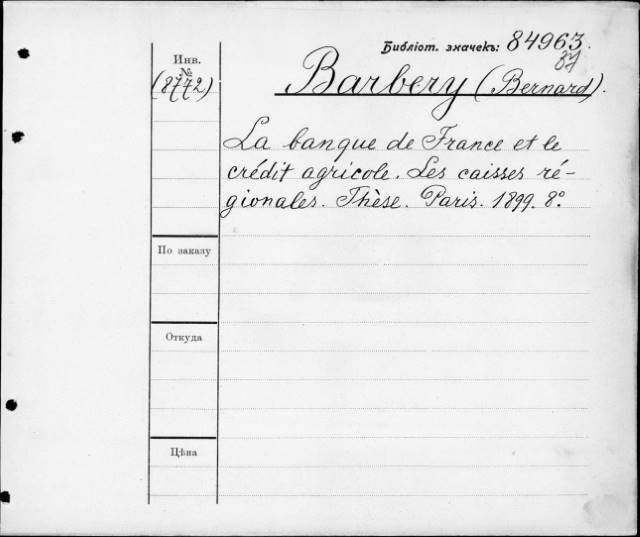 Библіот. значекъ: 84963.
Инв.
№
(8772)
Barbery (Bernard).
La banque de France et le
crédit agricole. Les caisses ré-
gionales. Thèse. Paris. 1899. 8°.
По заказу
Откуда
Цѣна